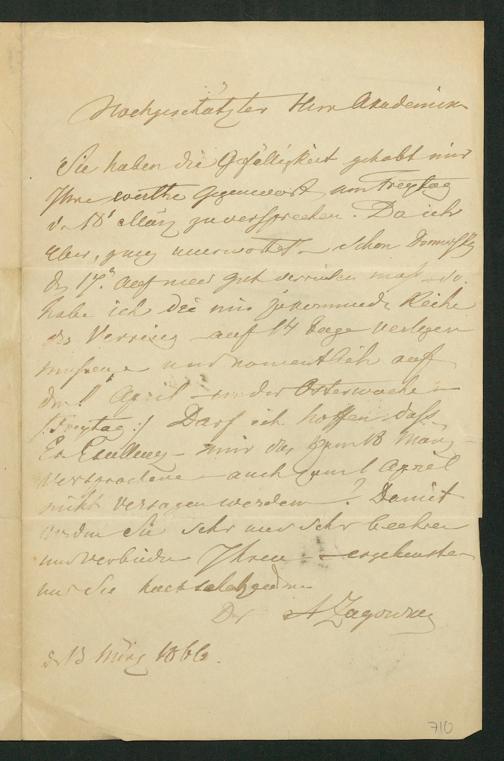 Hochgeschätzter Herr Akademiker
Sie haben die Gefälligkeit gehabt mir
Ihre werthe Gegenwart am Freytag
d. 18t März zu versprechen. Da ich
aber, ganz unerwartet – schon Donnerstg
den 17. auf mein Gut verreisen muß – so
habe ich die mir zukommende Reihe
des Vereins – auf 14 Tage verlegen
müssen – und namentlich auf
den 1t April – in der Osterwoche –
/:Freytag:/ Darf ich hoffen daß
Ew Excellenz – mir das zum 18 März –
Versprochene – auch zum 1 April
nicht versagen werden? Damit
werden Sie sehr und sehr beehren
und verbinden Ihren – ergebensten
und Sie hochschätzenden
Dr A Zagorsky
d. 13 März 1866.
710